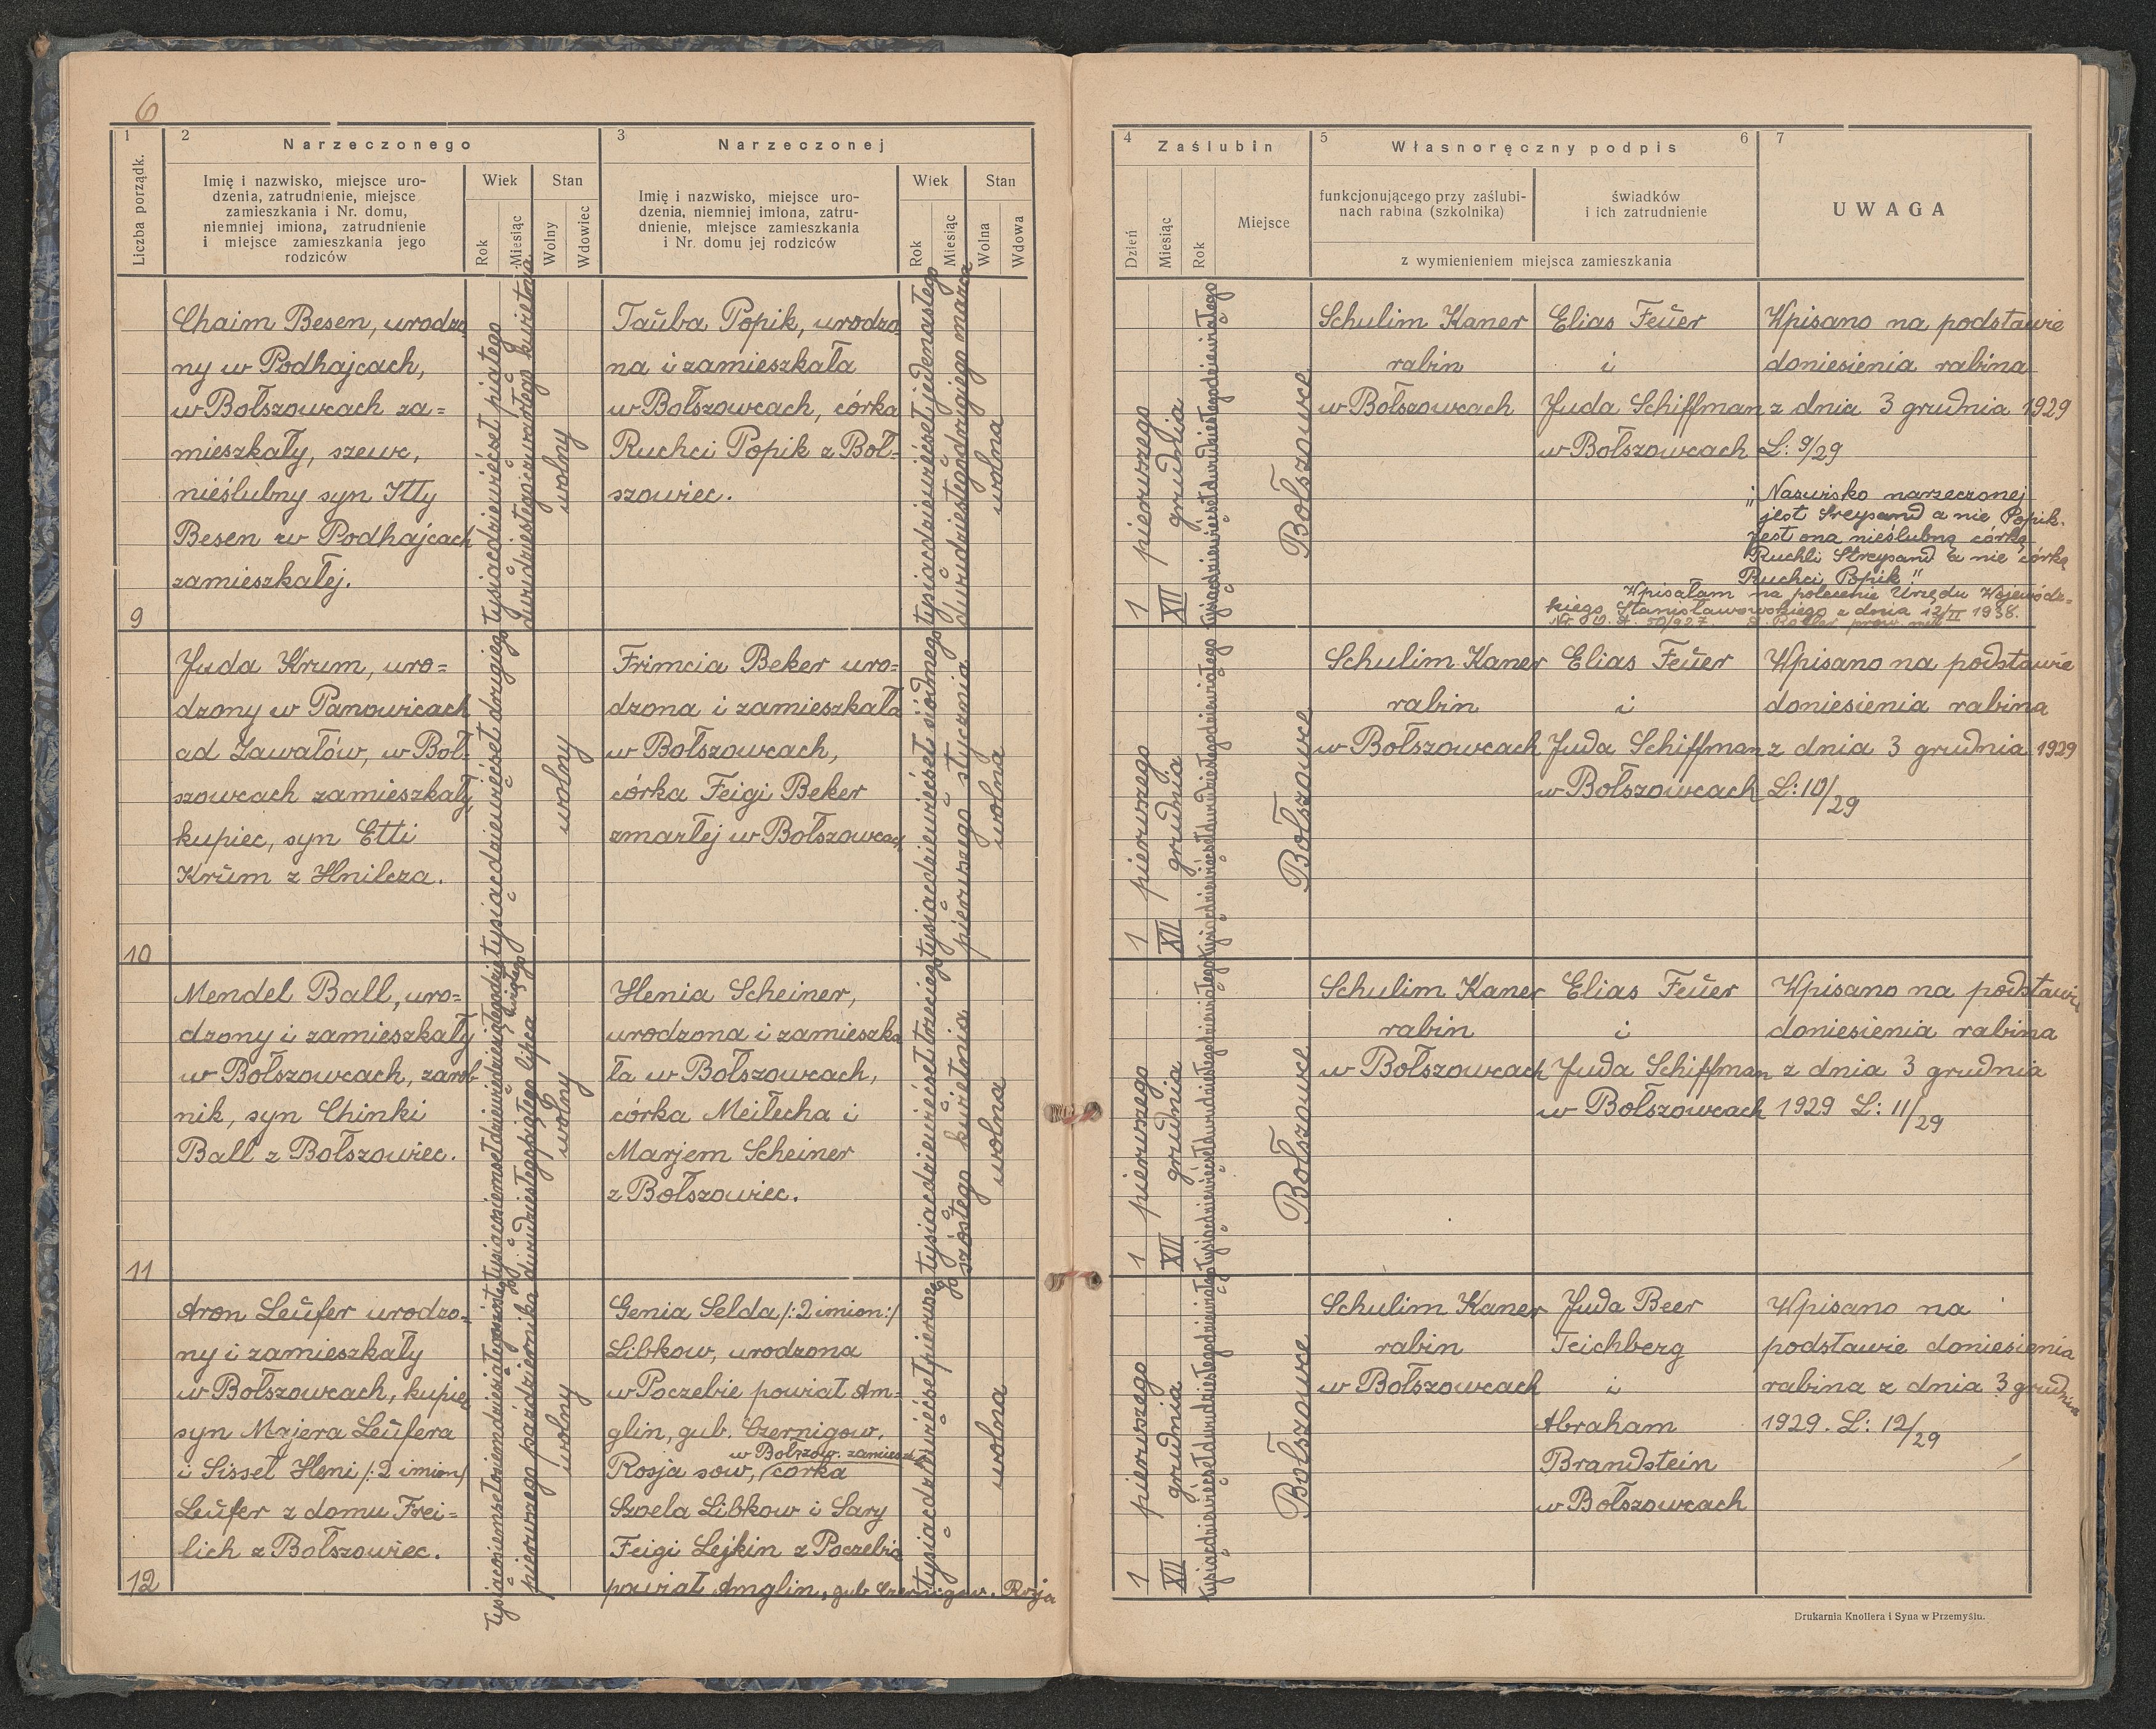 6
1
Liczba porządk.
2
Narzeczonego
Imię i nazwisko, miejsce uro-
dzenia, zatrudnienie, miejsce
zamieszkania i Nr. domu,
niemniej imiona, zatrudnienie
i miejsce zamieszkania jego
rodziców
Wiek
Rok
Miesiąc
Stan
Wolny
Wdowiec
3
Narzeczonej
Imię i nazwisko, miejsce uro-
dzenia, niemniej imiona, zatru-
dnienie, miejsce zamieszkania
i Nr. domu jej rodziców
Wiek
Rok
Miesiąc
Stan
Wolna
Wdowa
4
Zaślubin
Dzień
Miesiąc
Rok
Miejsce
5
Własnoręczny podpis
6
funkcjonującego przy zaślubi-
nach rabina (szkolnika)
świadków
i ich zatrudnienie
z wymienieniem miejsca zamieszkania
7
UWAGA
9
Chaim Besen, urodzo
ny w Podhajcach,
w Bołszowcach za=
mieszkały, szewc,
nieślubny syn Itty
Besen w Podhajcach
zamieszkałej.
tysiąc dziewięćset piątego
dwudziestego czwartego kwietnia
wolny
Taŭba Popik, urodzo
na i zamieszkała
w Bołszowcach, córka
Ruchci Popik z Boł-
szowiec.
tysiąc dziewięćset jedenastego
dwudziestego drugiego marca
wolna
1 pierwszego
XII grudnia
tysiąc dziewięćset dwudziestego dziewiątego
Bołszowce
Schulim Kaner
rabin
w Bołszowcach
Elias Feŭer
i
Juda Schiffman
w Bołszowcach
Wpisano na podstawie
doniesienia rabina
z dnia 3 grudnia 1929
L: 9/29
"Nazwisko narzeczonej
jest Sreysand a nie Popik.
Jest ona nieślubną córką
Ruchli Streysand a nie córką
Ruchci Popik."
Wpisałam na polecenie Urzędu Wojewódz=
kiego Stanisławowskiego z dnia 12/II 1938.
10
Juda Krum, uro=
dzony w Panowicach
ad Zawałów, w Boł-
szowcach zamieszkały,
kupiec, syn Etti
Krŭm z Hnilcza.
tysiąc dziewięćset drugiego
wolny
Frimcia Beker uro=
dzona i zamieszkała
w Bołszowcach,
córka Feigi Beker
zmarłej w Bołszowcach
tysiąc dziewięćset siódmego
pierwszego stycznia
wolna
1 pierwszego
XII grudnia
tysiąc dziewięćset dwudziestego dziewiątego
Bołszowce
Schulim Kaner
rabin
w Bołszowcach
Elias Feŭer
i
Juda Schiffman
w Bołszowcach
Wpisano na podstawie
doniesienia rabina
z dnia 3 grudnia 1929
L: 10/29
11
Mendel Ball, uro=
dzony i zamieszkały
w Bołszowcach, zarob
nik, syn Chinki
Ball z Bołszowiec.
tysiąc ośmset dziewiędziesiątego dzie
wiątego dwudziestego piątego lipca
wolny
Henia Scheiner,
urodzona i zamieszka
ła w Bołszowcach,
córka Meilecha i
Marjem Scheiner
z Bołszowiec.
tysiąc dziewięćset trzeciego
szóstego kwietnia
wolna
1 pierwszego
XII grudnia
tysiąc dziewięćset dwudziestego dziewiątego
Bołszowce
Schulim Kaner
rabin
w Bołszowcach
Elias Feŭer
i
Juda Schiffman
w Bołszowcach
Wpisano na podstawie
doniesienia rabina
z dnia 3 grudnia
1929 L: 11/29
12
Aron Leŭfer urodzo-
ny i zamieszkały
w Bołszowcach, kupiec
syn Majera Leŭfera
i Sissel Heni /:2 imion/
Leŭfer z domu Frei=
lich z Bołszowiec.
tysiąc ośmset ośmdziesiątego szóstego
pierwszego października
wolny
Genia Selda /:2 imion:/
Libkow, urodzona
w Poczebie powiat Am=
glin, gub. Czernigow.
w Bołszow. zamieszk.
Rosja sow, córka
Szoela Libkow i Sary
Feigi Lejkin z Poczebia
powiat Amglin, gub. Czernigow. Rosja
tysiąc dziewięćset pierwsze
go
wolna
1 pierwszego
XII grudnia
tysiąc dziewięćset dwudziestego dziewiątego
Bołszowce
Schulim Kaner
rabin
w Bołszowcach
Juda Beer
Teichberg
i
Abraham
Brandstein
w Bołszowcach
Wpisano na
podstawie doniesienia
rabina z dnia 3 grudnia
1929. L: 12/29
Drukarnia Knollera i Syna w Przemyślu.